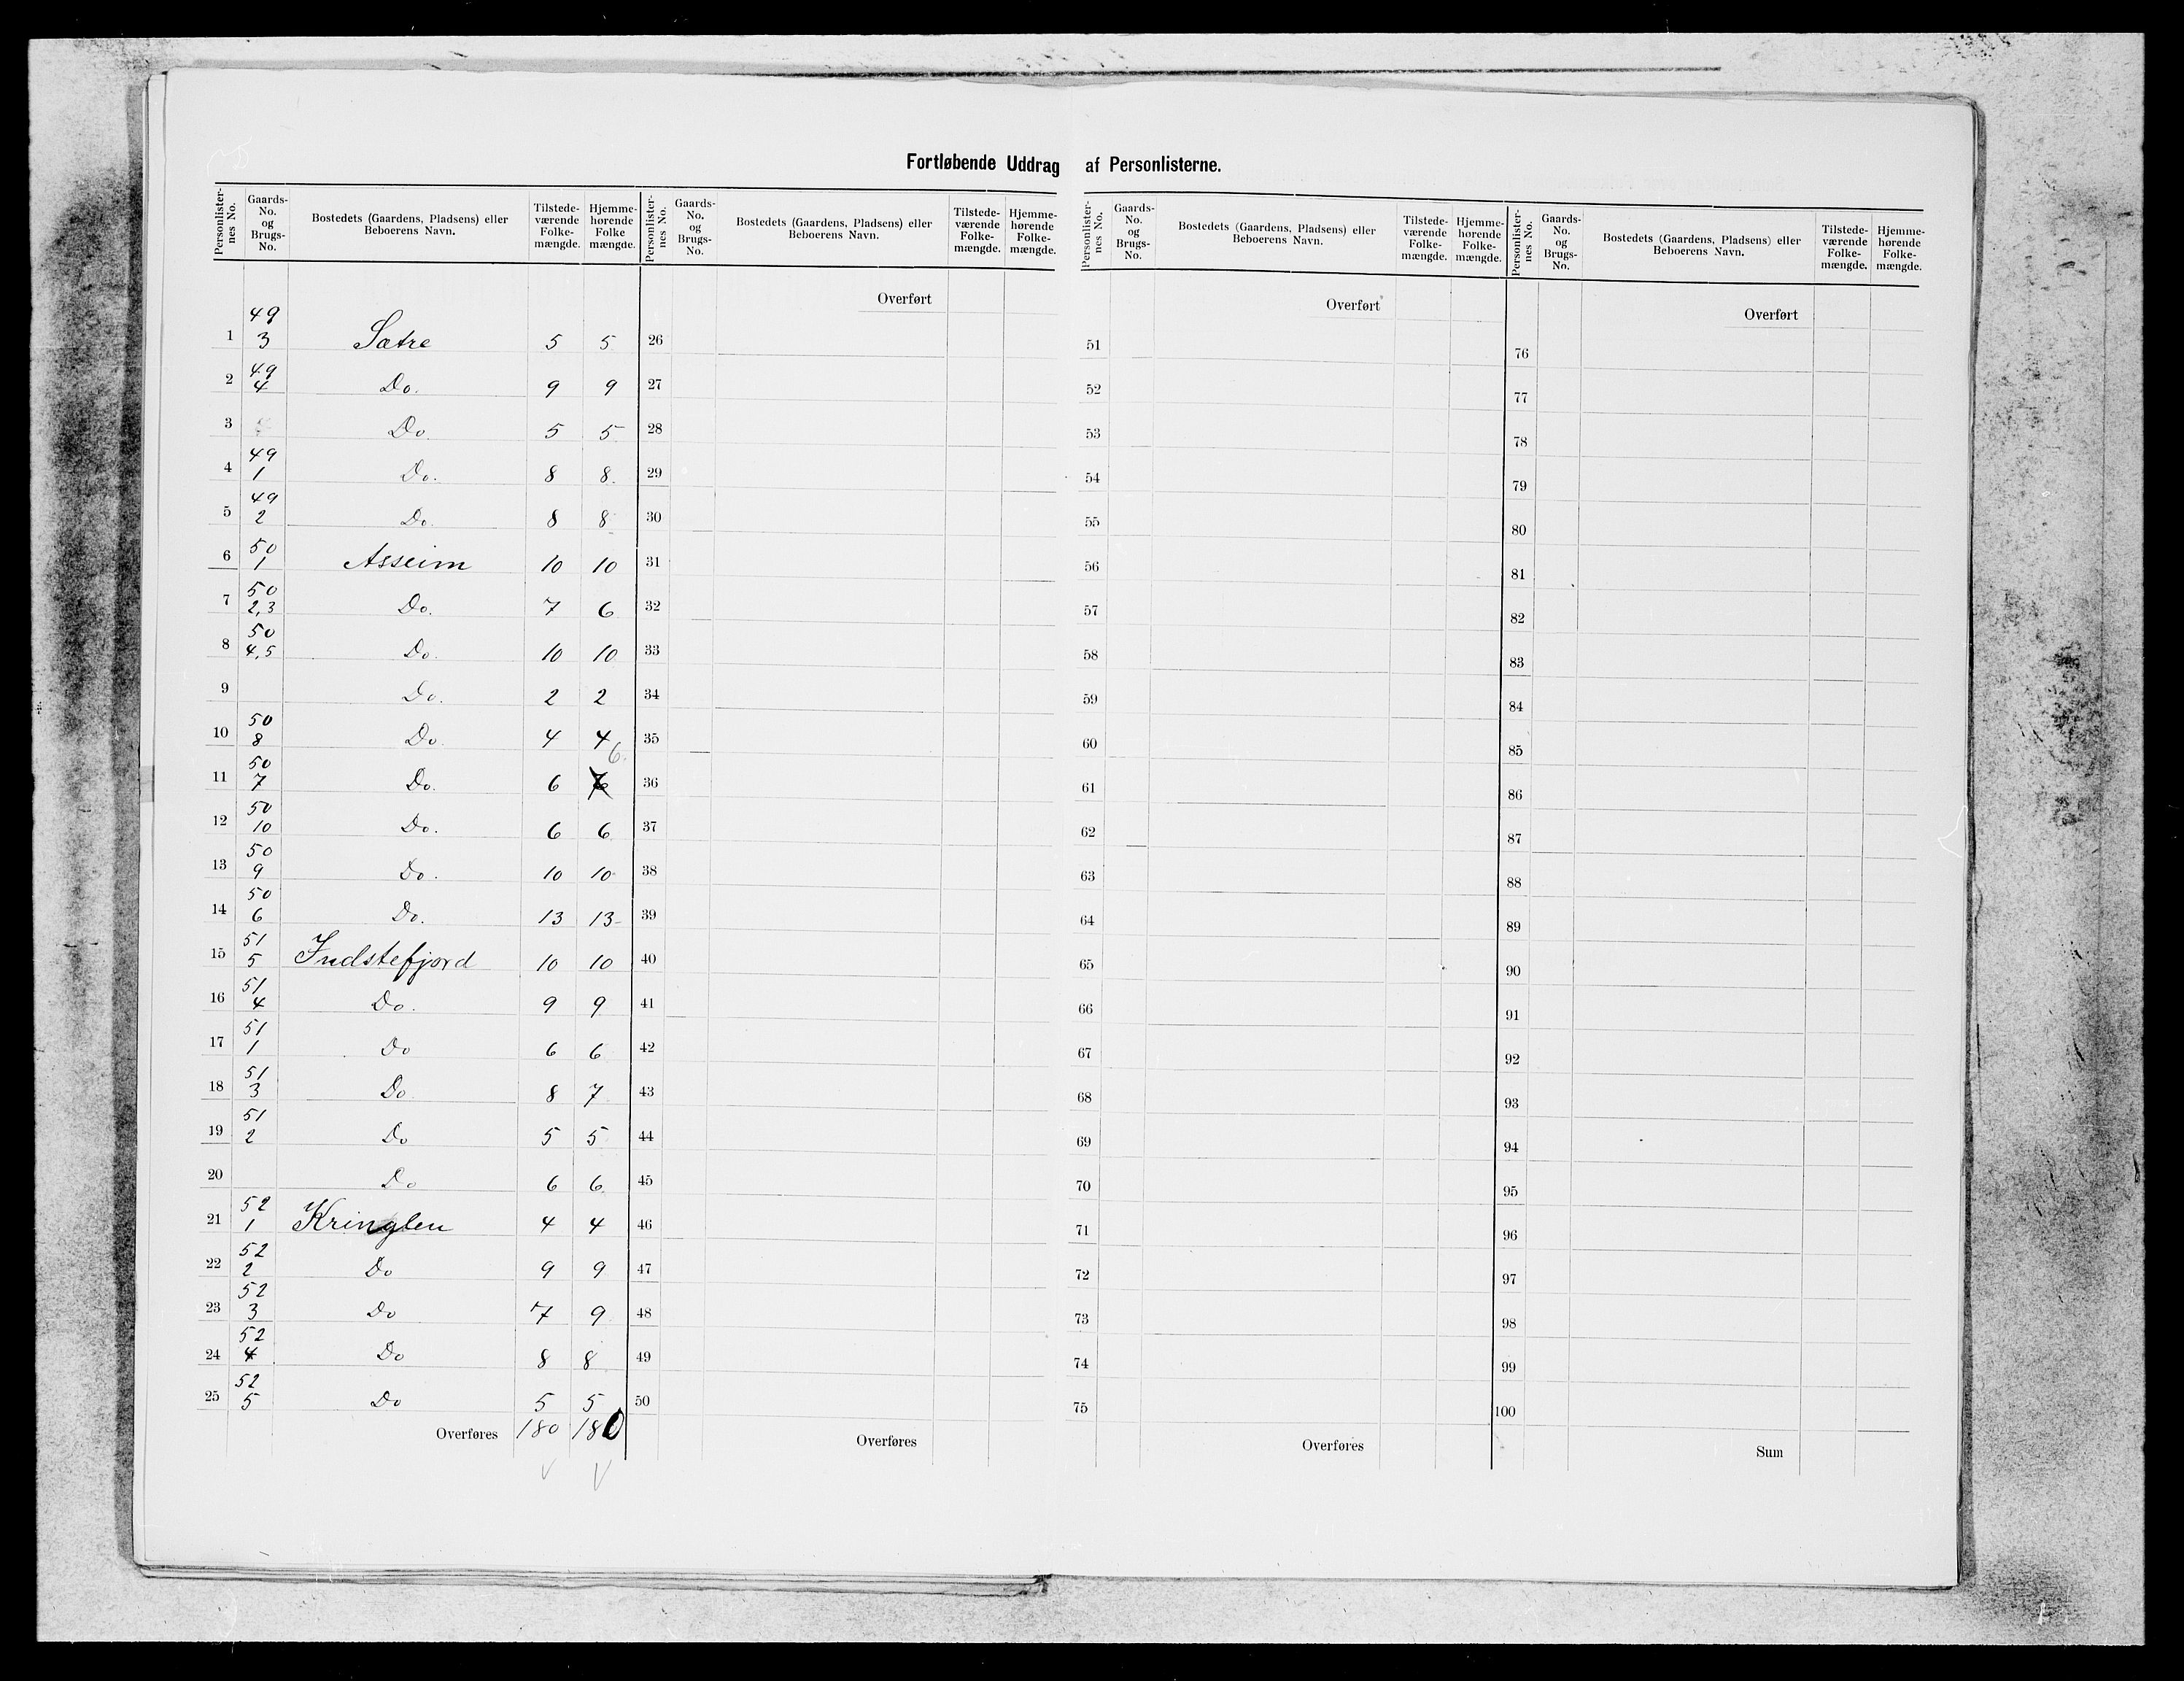 Fortløbende Uddrag af Personlisterne.
Personlister-nes No. | Gaards-No. og Brugs-No. | Bostedets (Gaardens, Pladsens) eller Beboerens Navn. | Tilstede-værende Folke-mængde. | Hjemme-hørende Folke mængde.
1 | 49 3 | Sætre | 5 | 5
2 | 49 4 | Do. | 9 | 9
3 | Do | 5 | 5
4 | 49 1 | Do. | 8 | 8
5 | 49 2 | Do. | 8 | 8
6 | 50 1 | Asseim | 10 | 10
7 | 50 2,3 | Do. | 7 | 6
8 | 50 4,5 | Do. | 10 | 10
9 | Do. | 2 | 2
10 | 50 8 | Do. | 4 | 4
11 | 50 7 | Do. | 6 | 7 6
12 | 50 10 | Do. | 6 | 6
13 | 50 9 | Do. | 10 | 10
14 | 50 6 | Do. | 13 | 13
15 | 51 5 | Indstefjord | 10 | 10
16 | 51 4 | Do. | 9 | 9
17 | 51 1 | Do | 6 | 6
18 | 51 3 | Do | 8 | 7
19 | 51 2 | Do | 5 | 5
20 | Do | 6 | 6
21 | 52 1 | Kringlen | 4 | 4
22 | 52 2 | Do | 9 | 9
23 | 52 3 | Do | 7 | 9
24 | 52 4 | Do | 8 | 8
25 | 52 5 | Do | 5 | 5
Overføres | 180 | 180
Personlister-nes No. | Gaards-No. og Brugs-No. | Bostedets (Gaardens, Pladsens) eller Beboerens Navn. | Tilstede-værende Folke-mængde. | Hjemme-hørende Folke-mængde.
Overført
26
27
28
29
30
31
32
33
34
35
36
37
38
39
40
41
42
43
44
45
46
47
48
49
50
Overføres
Personlister-nes No. | Gaards-No. og Brugs-No. | Bostedets (Gaardens, Pladsens) eller Beboerens Navn. | Tilstede-værende Folke-mængde. | Hjemme-hørende Folke-mængde.
Overført
51
52
53
54
55
56
57
58
59
60
61
62
63
64
65
66
67
68
69
70
71
72
73
74
75
Overføres
Personlister-nes No. | Gaards-No. og Brugs-No. | Bostedets (Gaardens, Pladsens) eller Beboerens Navn. | Tilstede-værende Folke-mængde. | Hjemme-hørende Folke-mængde.
Overført
76
77
78
79
80
81
82
83
84
85
86
87
88
89
90
91
92
93
94
95
96
97
98
99
100
Sum